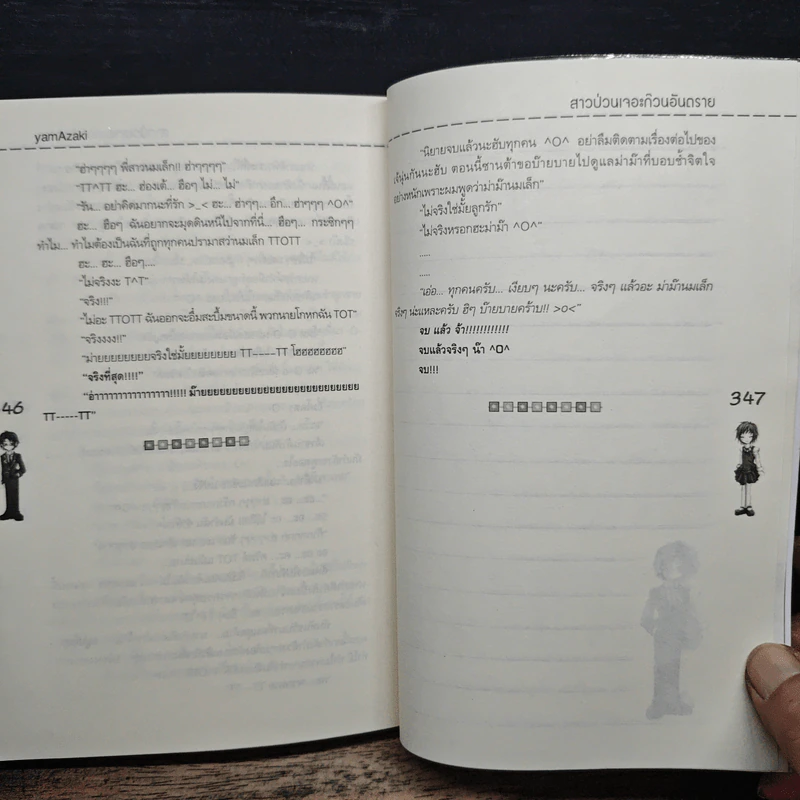 yamAzaki
“ฮ่าๆๆๆๆ พี่สาวนมเล็ก!! ฮ่าๆๆๆๆ”
“TT^TT ฮะ... ฮ่องเต้... ฮือๆ ไม่... ไม่”
“ริน... อย่าคิดมากนะที่รัก >_< ฮะ... ฮ่าๆๆ... อึก... ฮ่าๆๆๆ ^O^”
ฮะ... ฮือๆ ฉันอยากจะมุดดินหนีไปจากที่นี่... ฮือๆ... กระซิกๆ
ทำไม... ทำไมต้องเป็นฉันที่ถูกทุกคนปรามาสว่านมเล็ก TTOTT
ฮะ... ฮะ... ฮือๆ....
“ไม่จริงงะ T^T”
“จริง!!!”
“ไม่อะ TTOTT ฉันออกจะอึ๋มสะบึ้มขนาดนี้ พวกนายโกหกฉัน TOT”
“จริงงงง!!”
“ม่ายยยยยยยยจริงใช่มั้ยยยยยยยย TT----TT โฮฮฮฮฮฮฮฮ”
“จริงที่สุด!!!!”
“อ๋าาาาาาาาาาาาาาาาา!!!!! ม๊ายยยยยยยยยยยยยยยยยยยยยยยยยยยย
TT-----TT”
46
สาวป่วนเจอะก๊วนอันตราย
“นิยายจบแล้วนะฮับทุกคน ^O^ อย่าลืมติดตามเรื่องต่อไปของ
เจ้นุ่นกันนะฮับ ตอนนี้ซานต้าขอบ๊ายบายไปดูแลม่าม๊าที่บอบช้ำจิตใจ
อย่างหนักเพราะผมพูดว่าม่าม๊านมเล็ก”
“ไม่จริงใช่มั้ยลูกรัก”
“ไม่จริงหรอกฮะม่าม๊า ^O^”
....
.....
“เอ่อ... ทุกคนครับ... เงียบๆ นะครับ... จริงๆ แล้วอะ ม่าม๊านมเล็ก
จริงๆ น่ะแหละครับ ฮิๆ บ๊ายบายคร้าบ!! >o<”
จบ แล้ว จ้า!!!!!!!!!!!!
จบแล้วจริงๆ น๊า ^O^
จบ!!!
347